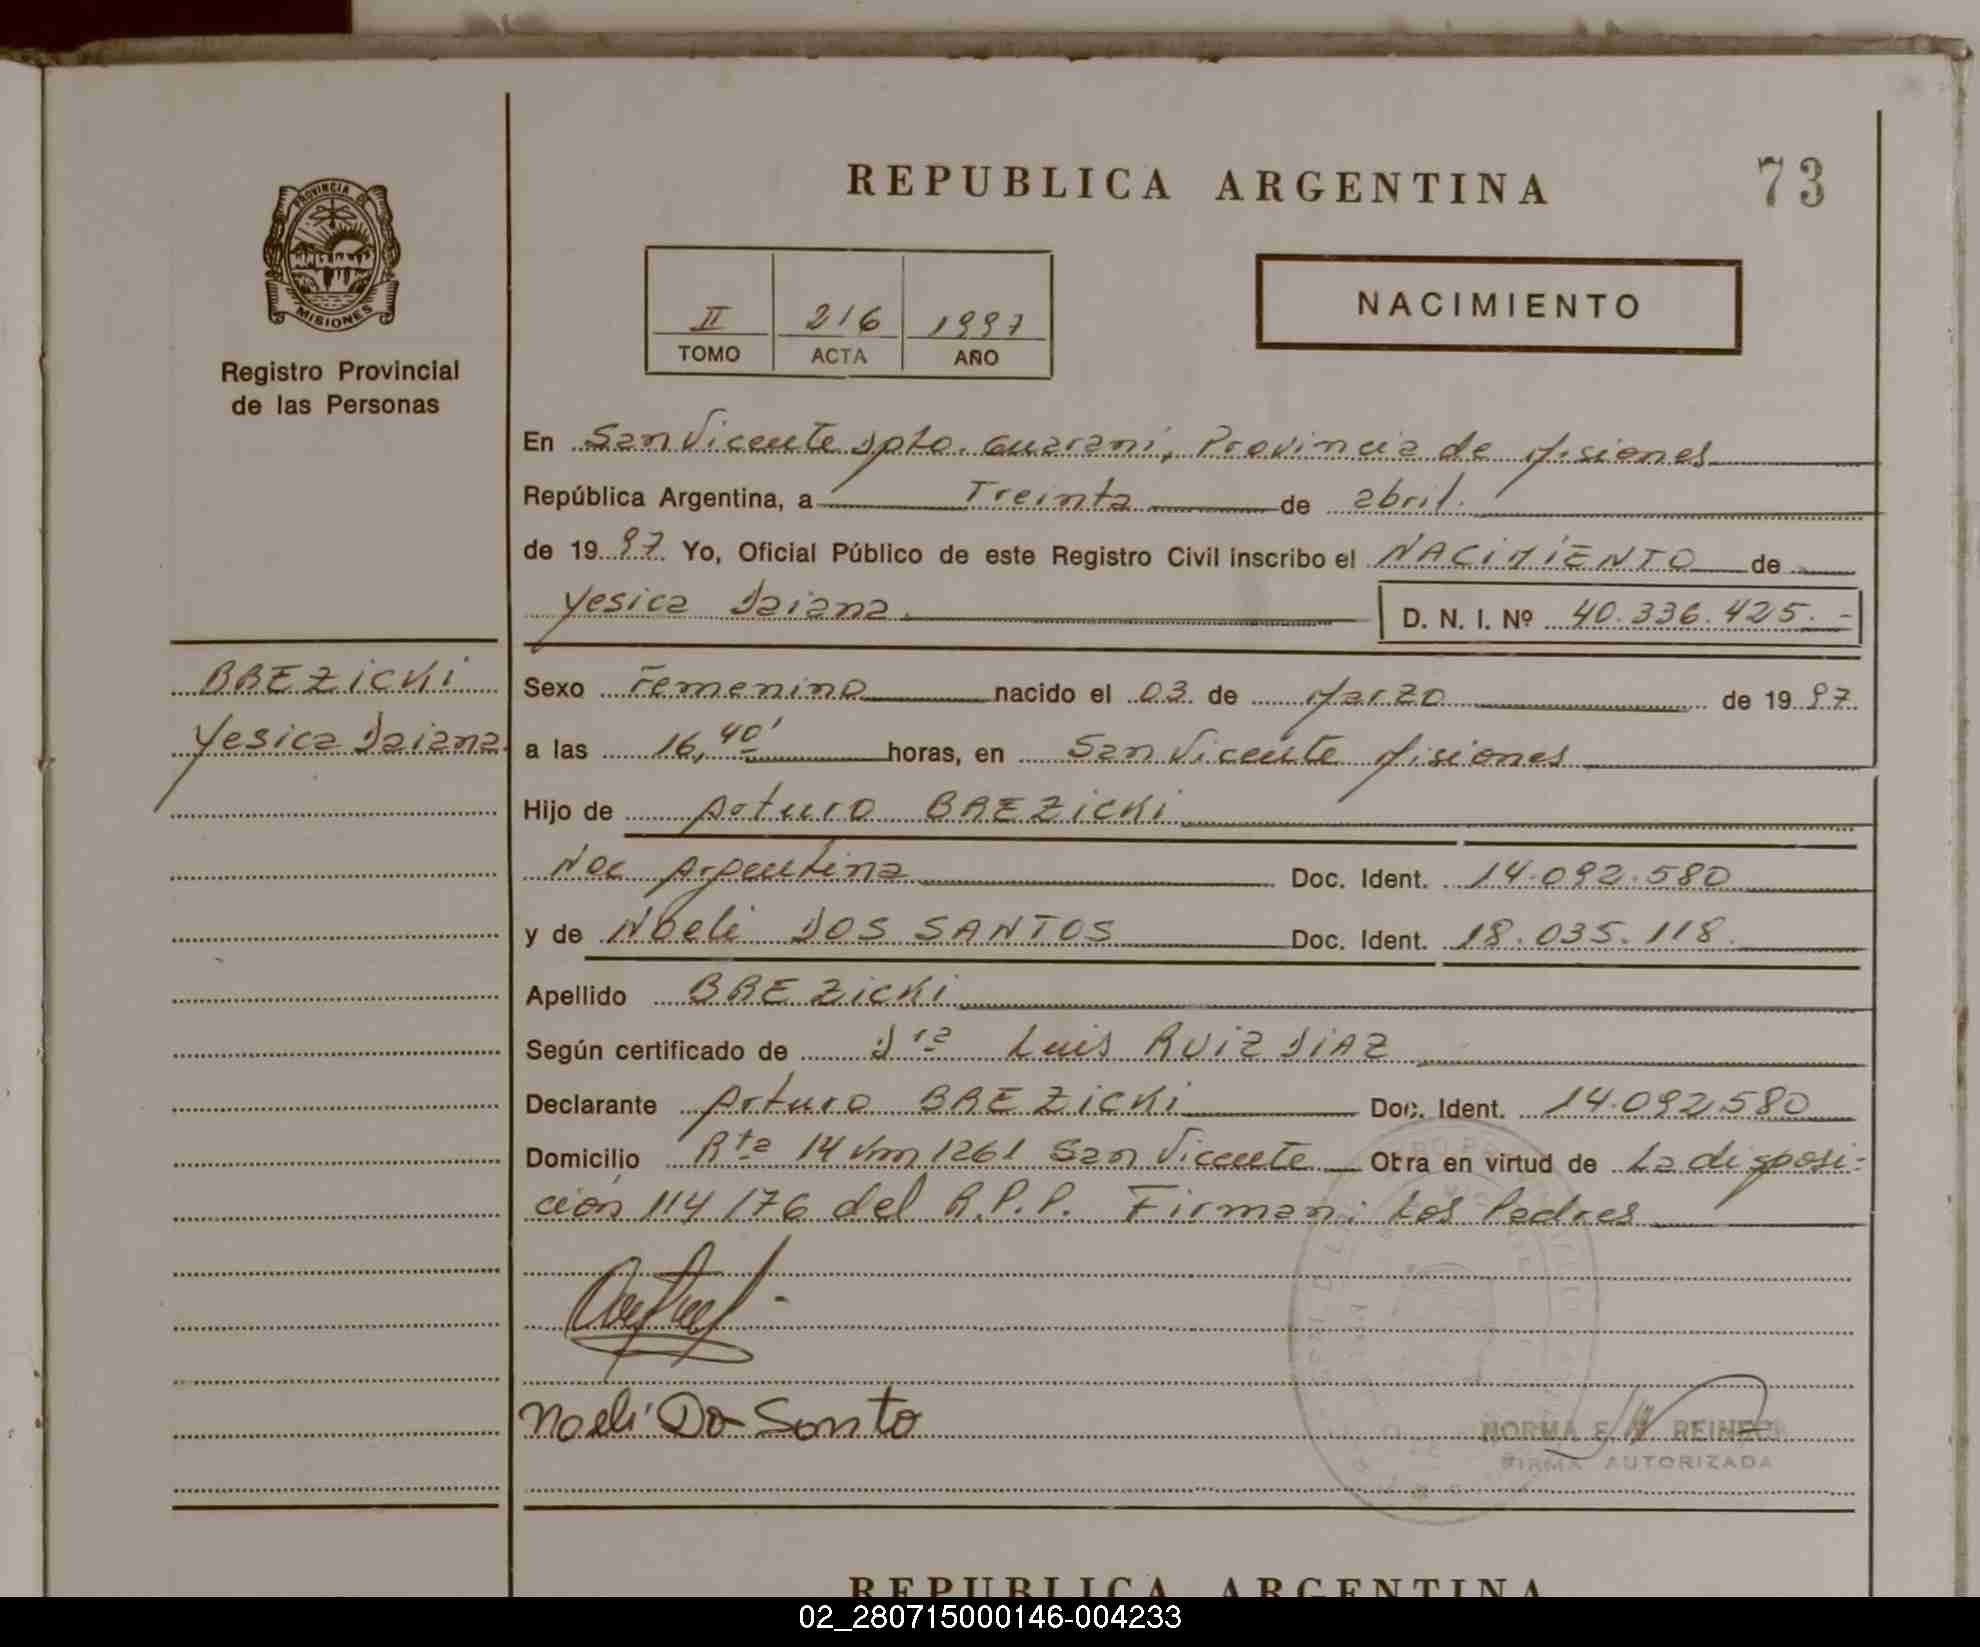 REPUBLICA ARGENTINA
73
PROVINCIA DE
MISIONES
Registro Provincial
de las Personas
II 216 1997
TOMO ACTA AÑO
NACIMIENTO
En San Vicente Dpto. Guaraní, Provincia de Misiones
República Argentina, a Treinta de abril.
de 1997 Yo, Oficial Público de este Registro Civil inscribo el NACIMIENTO de
Yesica Daiana. D. N. I. Nº 40.336.425.-
BREZicKi
Yesica Daiana
Sexo Femenino nacido el 03 de Marzo de 1997
a las 16,40' horas, en San Vicente Misiones
Hijo de Arturo BREZicKi
Nac Argentina Doc. Ident. 14.092.580
y de Noeli DOS SANTOS Doc. Ident. 18.035.118.
Apellido BREZicKi
Según certificado de Dra Luis RUiZ DiAZ
Declarante Arturo BREZicKi Doc. Ident. 14.092580
Domicilio Rta 14 Km 1261 San Vicente Otra en virtud de La disposi-
ción 114/76 del R.P.P. Firman: Los Padres
Noeli Do Santo
NORMA E. REINER
FIRMA AUTORIZADA
REPUBLICA ARGENTINA
02_280715000146-004233